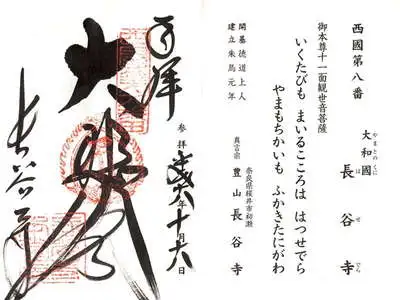 西國第八番
大和國 長谷寺
やまとのくに はせでら
御本尊十一面観世音菩薩
いくたびも まいるこころは はつせでら
やまもちかいも ふかきたにがわ
開基徳道上人
建立朱鳥元年
奈良県桜井市初瀬
真言宗 豊山 長谷寺
奉拝
参拝 年十月六日
大悲閣
長谷寺